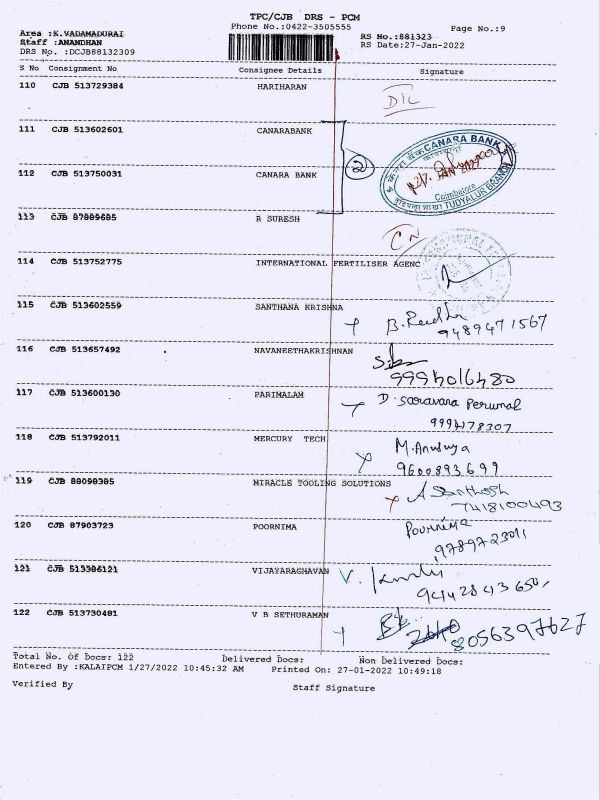 TPC/CJB DRS - PCM
Phone No.:0422-3505555
Page No.:9
Area :K.VADAMADURAI
Staff :ANANDHAN
DRS No. :DCJB88132309
RS No.:881323
RS Date:27-Jan-2022
S No Consignment No Consignee Details Signature
110 CJB 513729384 HARIHARAN
D/L
111 CJB 513602601 CANARABANK
112 CJB 513750031 CANARA BANK
2
केनरा बैंक CANARA BANK
JAN 2022
Coimbatore
शाखा TUDYALUR BRANCH
113 CJB 87889685 R SURESH
CN
114 CJB 513752775 INTERNATIONAL FERTILISER AGENC
115 CJB 513602559 SANTHANA KRISHNA
B. Reetha
9489471567
116 CJB 513657492 NAVANEETHAKRISHNAN
9994016480
117 CJB 513600130 PARIMALAM
D. Saravana Perumal
9994178307
118 CJB 513792011 MERCURY TECH
M. Anusuya
9600893699
119 CJB 88098385 MIRACLE TOOLING SOLUTIONS
A Santhosh
7418100493
120 CJB 87903723 POORNIMA
Poornima
9789723011
121 CJB 513386121 VIJAYARAGHAVAN
V.
9442843650
122 CJB 513730481 V B SETHURAMAN
8056397627
Total No. Of Docs: 122 Delivered Docs: Non Delivered Docs:
Entered By :KALAIPCM 1/27/2022 10:45:32 AM Printed On: 27-01-2022 10:49:18
Verified By Staff Signature